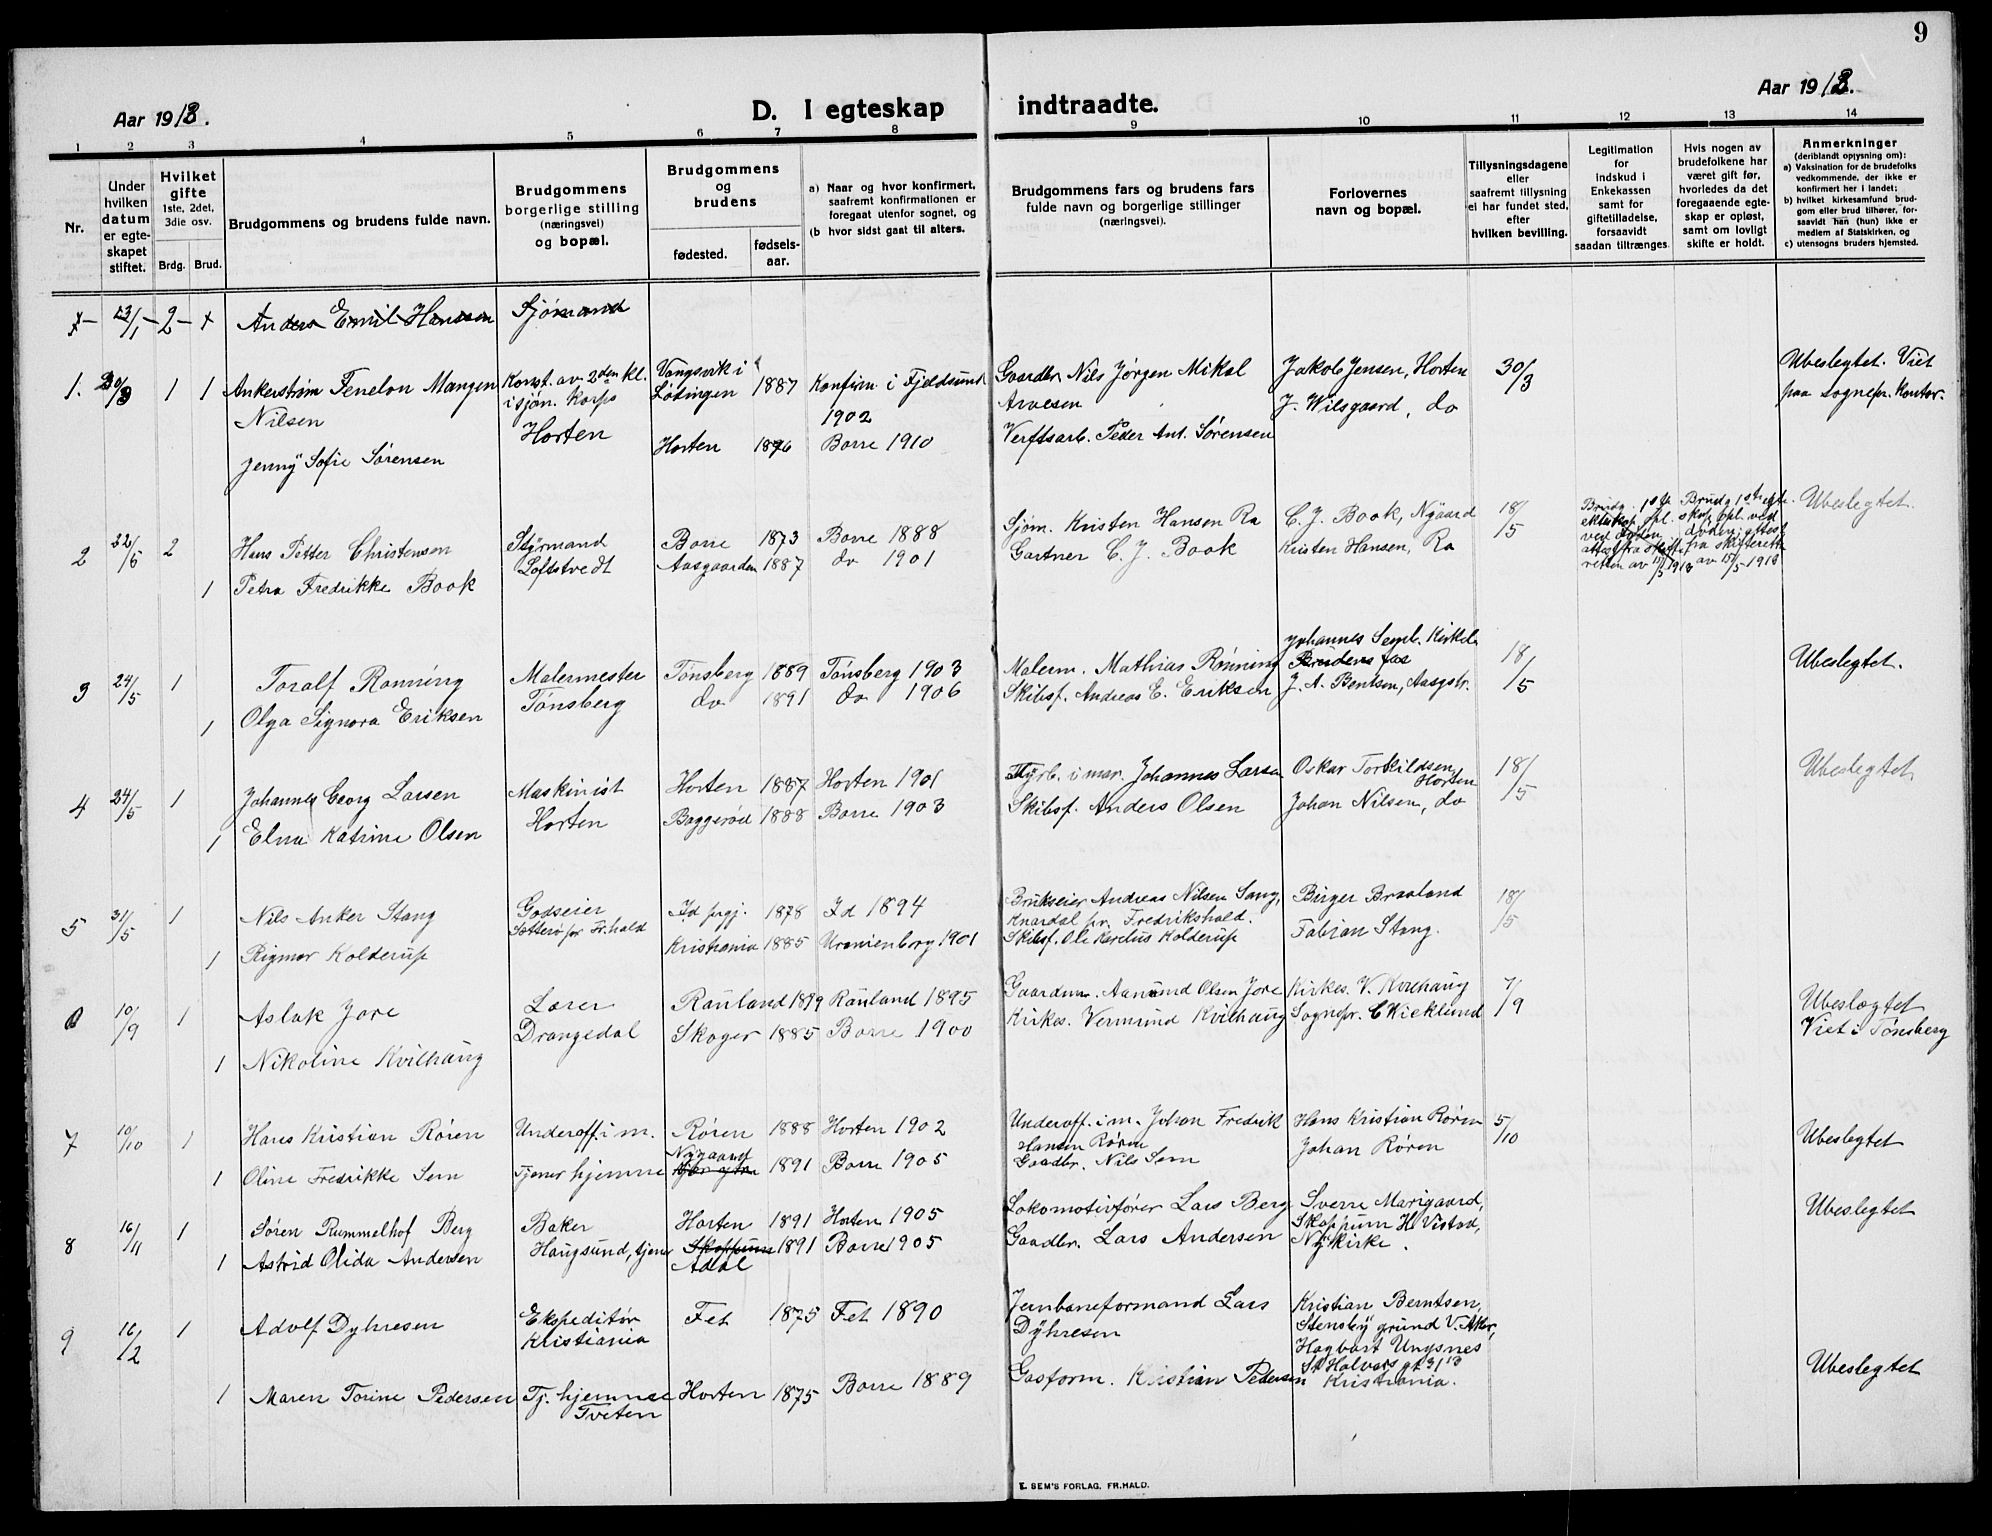 9
Aar 1913.
D. I egteskap indtraadte.
Aar 1913.
1 2 3 4 5 6 7 8 9 10 11 12 13 14
Nr.
Under hvilken datum er egteskapet stiftet.
Hvilket gifte 1ste, 2det, 3die osv.
Brdg. Brud.
Brudgommens og brudens fulde navn.
Brudgommens borgerlige stilling (næringsvei) og bopæl.
Brudgommens og brudens
fødested. fødselsaar.
a) Naar og hvor konfirmert, saafremt konfirmationen er foregaat utenfor sognet, og
(b hvor sidst gaat til alters.
Brudgommens fars og brudens fars fulde navn og borgerlige stillinger (næringsvei).
Forlovernes navn og bopæl.
Tillysningsdagene eller saafremt tillysning ei har fundet sted, efter hvilken bevilling.
Legitimation for indskud i Enkekassen samt for giftetilladelse, forsaavidt saadan tiltrænges.
Hvis nogen av brudefolkene har været gift før, hvorledes da det foregaaende egteskap er opløst, samt om lovligt skifte er holdt.
Anmerkninger (deriblandt opiysning om):
a) Vaksination for de brudefolks vedkommende, der ikke er konfirmert her i landet;
b) hvilket kirkesamfund brudgom eller brud tilhører, forsaavidt han (hun) ikke er medlem af Statskirken, og
c) utensogns bruders hjemsted.
23/1 2 Anders Emil Hansen Sjømand
1. 30/3 1 1 Ankerstrøm Fenelon Mangen Nilsen
Konst. av 2den kl. i sjøm. Korps Horten
Vangsvik i Lødingen 1887 Konfirm. i Fjeldsund 1902
Gaardbr. Nils Jørgen Mikal Arvesen
Jakob Jensen, Horten 30/3
Ubeslegtet. Viet paa sognepr. Kontor.
Jenny Sofie Sørensen
Horten 1896 Borre 1910
Verftsarb. Peder Ant. Sørensen
J. Wilsgaard, do
2 22/5 2 Hans Petter Christensen
Styrmand Loftstvedt
Borre 1873 Borre 1888
Sjøm. Kristen Hansen Ra
C. J. Book, Nygaard 18/5
Ubeslegtet.
1 Petra Fredrikke Book
Aasgaarden 1887 do 1901
Gartner C. J. Book
Kristen Hansen, Ra
3 24/5 1 Toralf Rønning
Malermester Tønsberg
Tønsberg 1889 Tønsberg 1903
Malerm. Mathias Rønning
Brudens far
18/5
Ubeslegtet.
1 Olga Signora Eriksen
do 1891 do 1906
Skibsf. Andreas E. Eriksen
J. A. Bentsen, Aasgstr.
4 24/5 1 Johannes Georg Larsen
Maskinist Horten
Horten 1887 Horten 1901
Johannes Larsen
Oskar Torkildsen, Horten 18/5
Ubeslegtet
1 Elna Katrine Olsen
Baggerød 1888 Borre 1903
Skibsf. Anders Olsen
Johan Nilsen, do
5 31/5 1 Nils Anker Stang
Godseier
Id prgj. 1878 Id 1894
Brukseier Andreas Nilsen Sang, Knardal pr. Fredrikshald.
Birger Braaland 18/5
1 Rigmor Kolderup
Kristiania 1885 Uranienborg 1901
Skibsf. Ole Karelius Kolderup
Fabian Stang.
6 10/9 1 Aslak Jore
Lærer Drangedal
Rauland 1879 Rauland 1895
Gaardm. Aanund Olsen Jore
Kirkes. V. Kvilhaug 7/9
Ubeslægtet Viet i Tønsberg
1 Nikoline Kvilhaug
Skoger 1885 Borre 1900
Kirkes. Vermund Kvilhaug
Sognepr. C Wicklund
7 10/10 1 Hans Kristian Røren
Underoff. i m.
Røren 1888 Horten 1902
Underoff. i m. Johan Fredrik Hansen Røren
Hans Kristian Røren 5/10
Ubeslegtet
1 Oline Fredrikke Sem
Tjener hjemme
Nygaard 1891 Borre 1905
Gaadbr. Nils Sem
Johan Røren
8 16/11 1 Søren Rummelhof Berg
Baker
Horten 1891 Horten 1905
Lokomotivfører Lars Berg
Sverre Marigaard, Skoppum
Ubeslegtet
1 Astrid Olida Andersen
Haugsund, tjener
Skoppum Adal 1891 Borre 1905
Gaadbr. Lars Andersen
H. Vistad, Nykirke.
9 16/12 1 Adolf Dyhresen
Ekspeditør Kristiania
Fet 1875 Fet 1890
Jernbaneformand Lars Dyhresen
Kristian Berntsen, Stensby grund V. Aker,
1 Maren Torine Pedersen
Tj. hjemme Tveten
Horten 1875 Borre 1889
Gasform. Kristian Pedersen
Hagbart Ungsnes St Halvors gt 31 Kristiania.
Ubeslegtet
E. SEM'S FORLAG, FR.HALD.